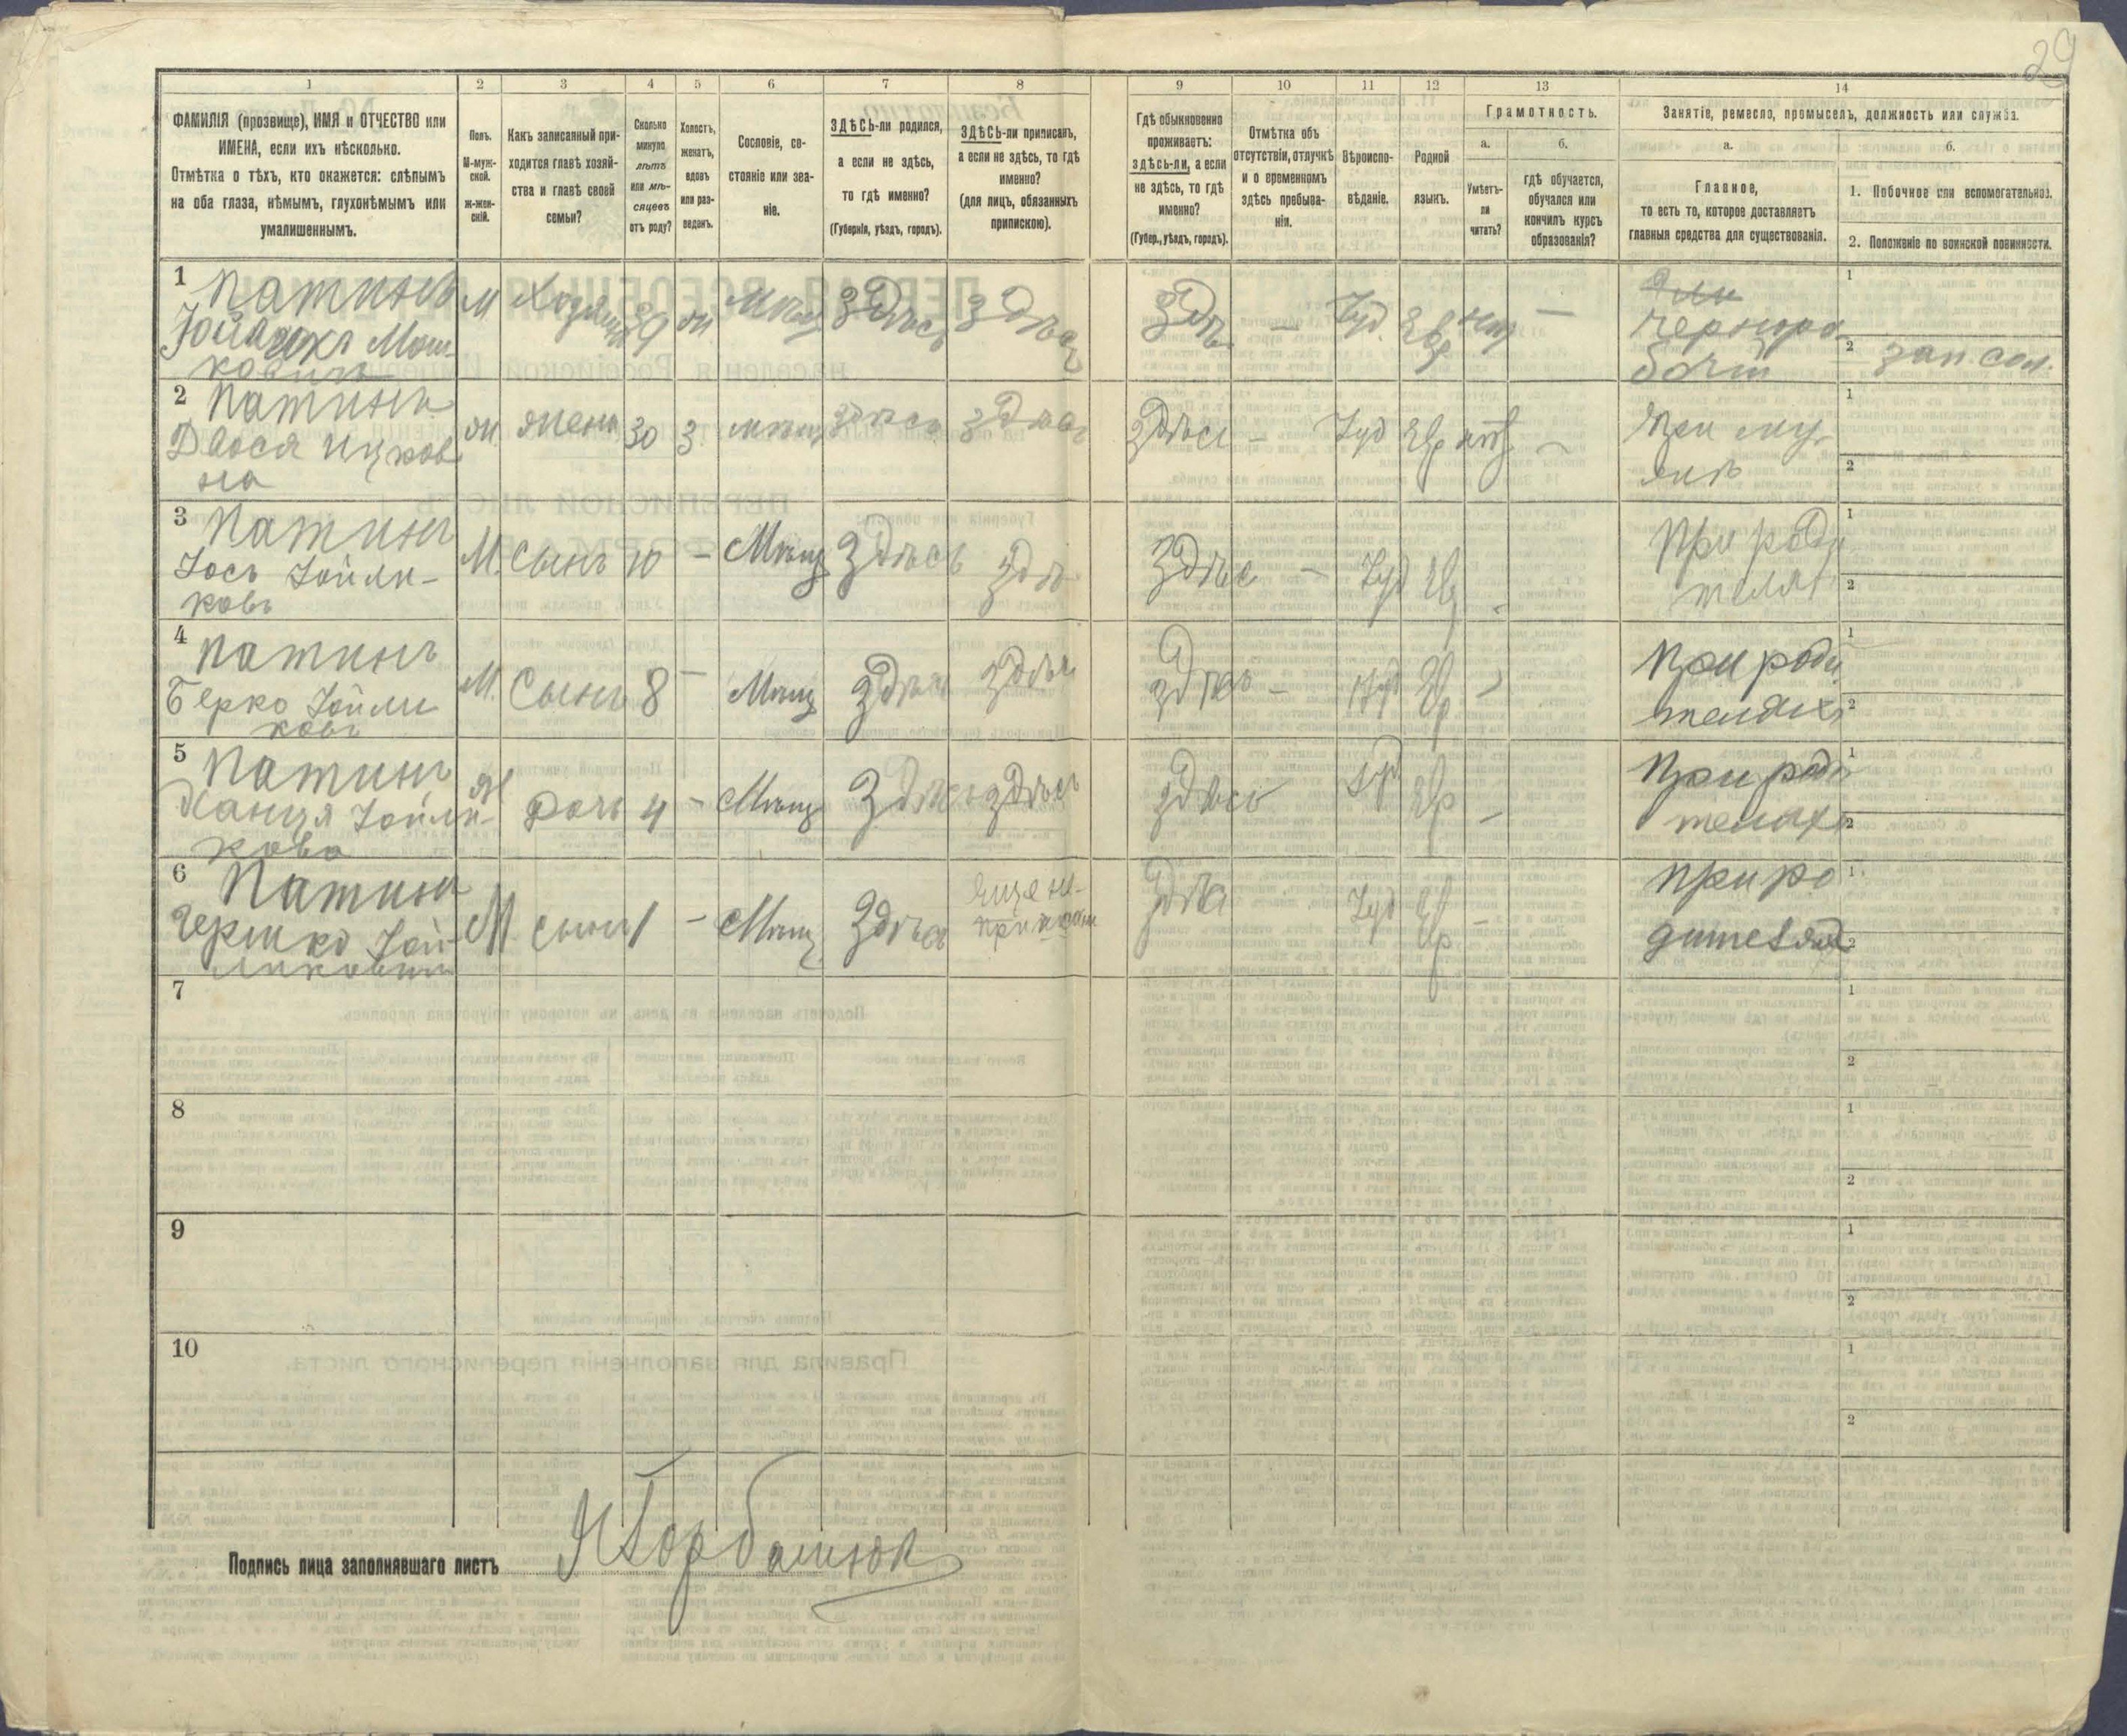 29
1
2
3
4
5
6
7
8
9
10
11
12
13
14
ФАМИЛІЯ (прозвище), ИМЯ и ОТЧЕСТВО или
ИМЕНА, если ихъ нѣсколько.
Отмѣтка о тѣхъ, кто окажется: слѣпымъ
на оба глаза, нѣмымъ, глухонѣмымъ или
умалишеннымъ.
Полъ.
М-муж-
ской.
Ж-жен-
скій.
Какъ записанный при-
ходится главѣ хозяй-
ства и главѣ своей
семьи?
Сколько
минуло
лѣтъ
или мѣ-
сяцевъ
отъ роду?
Холостъ,
женатъ,
вдовъ
или раз-
веденъ.
Сословіе, со-
стояніе или зва-
ніе.
ЗДѢСЬ-ли родился,
а если не здѣсь,
то гдѣ именно?
(Губернія, уѣздъ, городъ).
ЗДѢСЬ-ли приписанъ,
а если не здѣсь, то гдѣ
именно?
(для лицъ, обязанныхъ
припискою).
Гдѣ обыкновенно
проживаетъ:
здѣсь-ли, а если
не здѣсь, то гдѣ
именно?
(Губер., уѣздъ, городъ).
Отмѣтка объ
отсутствіи, отлучкѣ
и о временномъ
здѣсь пребыва-
ніи.
Вѣроиспо-
вѣданіе.
Родной
языкъ.
Грамотность.
а.
Умѣетъ-
ли
читать?
б.
гдѣ обучается,
обучался или
кончилъ курсъ
образованія?
Занятіе, ремесло, промыселъ, должность или служба.
а.
Главное,
то есть то, которое доставляетъ
главныя средства для существованія.
б.
1. Побочное или вспомогательное.
2. Положеніе по воинской повинности.
1 Патинъ
М Хозяинъ 39 Мѣщ здѣсь здѣсь здѣсь — Іуд. Евр нѣт —
Черпора-
бочій
2 зап сол.
2 Патинъ
Двося Ицков
на
ж. жена 30 з. мѣщ здѣсь здѣсь здѣсь — Іуд Евр нѣт —
При му-
жѣ
3 Патинъ
Іось Іойли-
ковъ
М. сынъ 10 — Мѣщ здѣсь здѣ здѣсь — Іуд Ев -
При роди
теля
4 Патинъ
Берко Іойли
ковъ
М. Сынъ 8 — Мѣщ здѣсь здѣсь здѣсь — Іуд Евр -
При роди
теляхъ
5 Патинъ
Ханця Іойли-
кова
Ж дочь 4 — Мѣщ здѣсь здѣсь здѣсь Іуд Евр -
При роди
теляхъ
6 Патинъ
Гершко Іой-
ликовичъ
М. сынъ 1 — Мѣщ здѣсь еще не-
приписан
здѣсь Іуд Евр —
При ро
дителях
7
8
9
10
Подпись лица заполнявшаго листъ